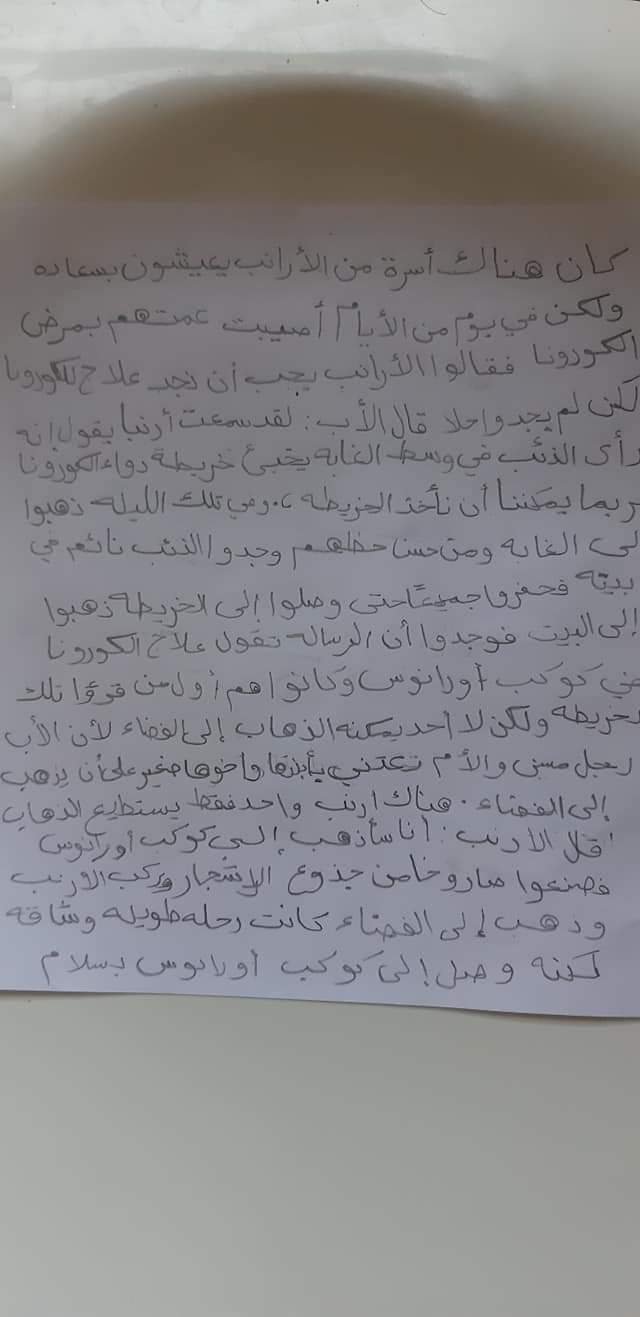 كان هناك أسرة من الأرانب يعيشون بسعاده
ولكن في يوم من الأيام أصيبت عمتهم بمرض
الكورونا فقالوا الأرانب يجب أن نجد علاج للكورونا
لكن لم يجدوا حلا قال الأب: لقد سمعت أرنبا يقول إنه
رأى الذئب في وسط الغابه يخبئ خريطة دواء الكورونا
ربما يمكننا أن نأخذ الخريطه، وفي تلك الليله ذهبوا
لى الغابه ومن حسن حظهم وجدوا الذئب نائم في
بيته فحفروا جميعًا حتى وصلوا إلى الخريطه ذهبوا
إلى البيت فوجدوا أن الرساله تقول علاج الكورونا
في كوكب أورانوس وكانوا هم أول من قرؤا تلك
لخريطه ولكن لا أحد يمكنه الذهاب إلى الفضاء لأن الأب
رجل مسن والأم تعتني بأبنتها وأخوها صغير على أن يذهب
إلى الفضاء. هناك ارنب واحد فقط يستطيع الذهاب
قال الأرنب: أنا سأذهب إلى كوكب أورانوس
فصنعوا صاروخا من جذوع الإشجار وركب الأرنب
وذهب إلى الفضاء كانت رحله طويله وشاقه
لكنه وصل إلى كوكب أورانوس بسلام